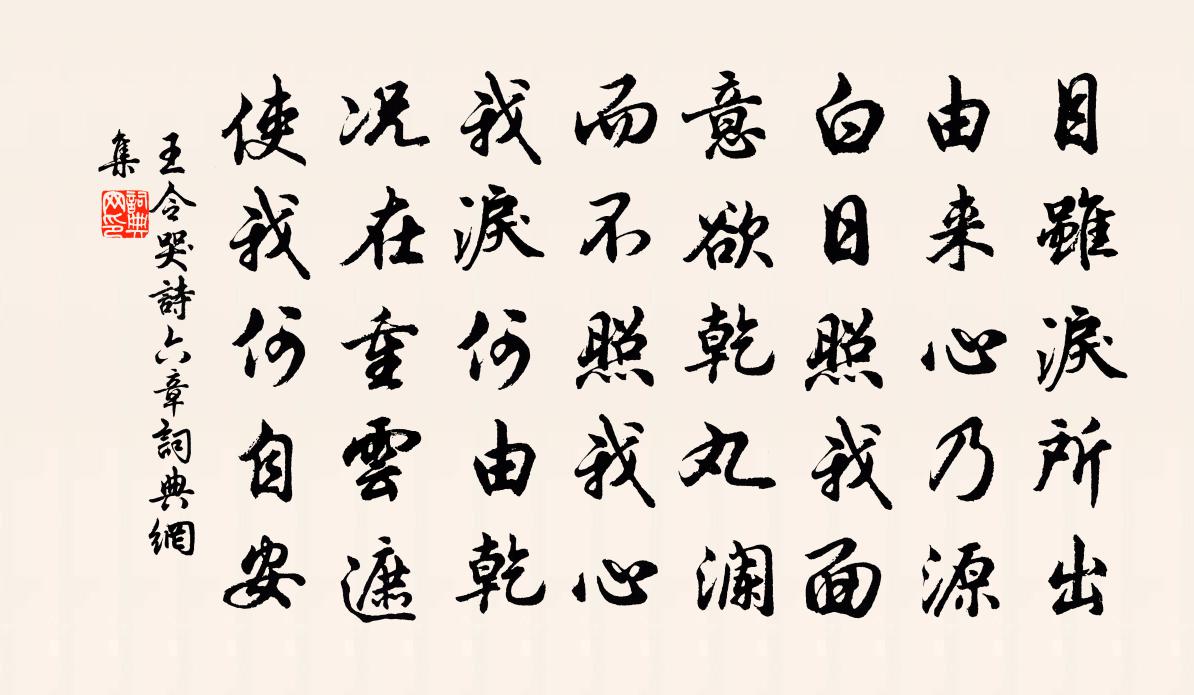 目雖淚所出
由来心乃源
白日照我面
意欲乾丸瀾
而不照我心
我淚何由乾
况在重雲遮
使我何自安
王令哭詩六章詞典網
集
詞典
网印